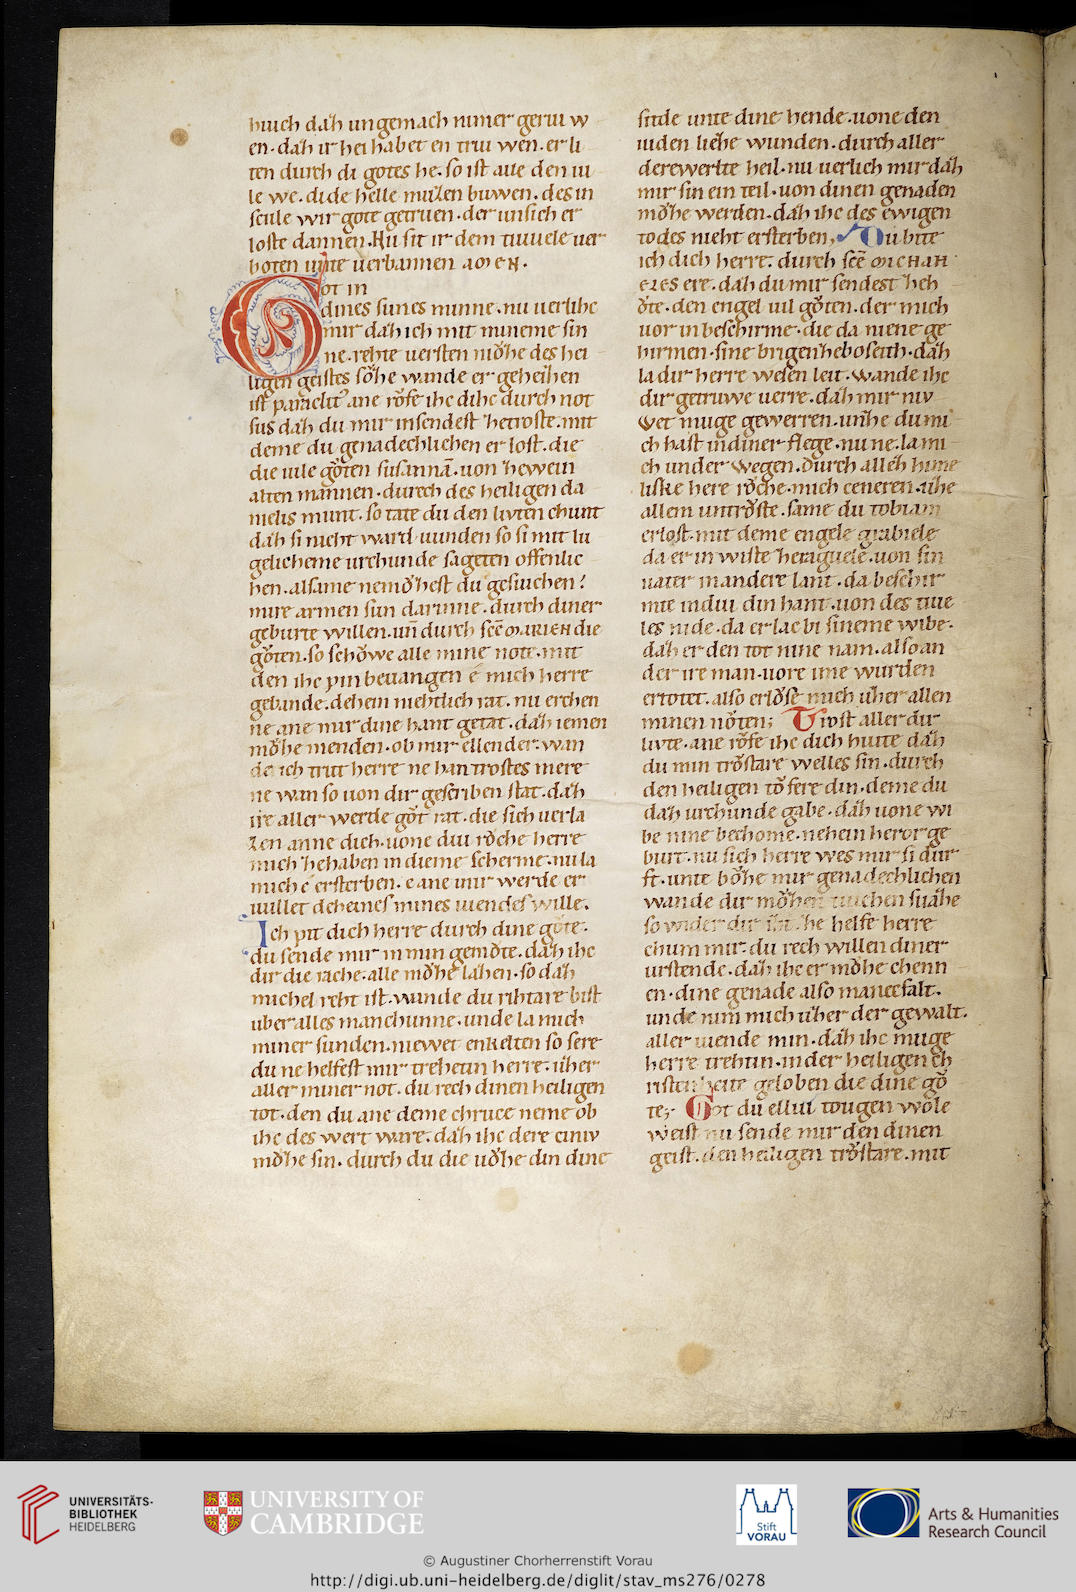 hiuch dah ungemach nimer geriu w
en·dah ir hei habet en triu wen·er li
ten durch di gotes he·so ist aue den ui
le we·di de helle muzen buwen·des in
sciile wir gote getruen·der unsich er
loste dannen·Nu sit ir dem tiuuele uer
boten unte uerbannen AMEN·
Got in
dines sunes minne·nu uerlihe
mir dah ich mit mineme sin
ne·rehte uersten mǒhe des hei
ligen geistes sǒhe wande er geheihen
ist paraclit᾽ ane rǒfe ihc dihc durch not
sus dah du mir insendest hetroste·mit
deme du genadechlichen er lost·die
die uile gǒten susannā·uon hewein
alten mannen·durch des heiligen da
nielis munt·so tate du den livten chunt
dah si nieht ward uunden so si mit lu
gelicheme urchunde sageten offenlic
hen·alsame nemǒhest du gesuichen?
mire armen sun darinne·durch diner
geburte willen·uñ durch scē MARIEN die
gǒten·so schǒwe alle mine note·mit
den ihc pin beuangen é mich herre
gebande·dehein niehtlich rat·nu erchen
ne ane mir dine hant getat·dah iemen
mǒhe menden·ob mir ellender·wan
de ich tritt herre ne han trostes mere
ne wan so uon dir gescriben stat·dah
ire aller werde gǒt rat·die sich uerla
zen anne dich·uone diu rǒche herre
mich behaben in dieme scherme·nu la
mich é ersterben·e ane mir werde er
uullet deheines mines uiendes wille·
Ich pit dich herre durch dine gǒte·
du sende mir in min gemǒte·dah ihc
dir die rache·alle mǒhe lahen·so dah
michel reht ist·wande du rihtare bist
uber alles manchunne·unde la mich
miner sunden·niewet enkelten so sere
du ne helfest mir trehetin herre·über
aller miner not·du rech dinen heiligen
tot·den du ane deme chruce neme ob
ihc des wert ware·dah ihc dere einiv
mǒhe sin·durch du die uǒhe din dine
sitde unte dine hende·uone den
iuden liehe wunden·durch aller
derewerlte heil·nu uerlich mir dah
mir sin ein teil·uon dinen genaden
mǒhe werden·dah ihc des ewigen
todes nieht ersterben; Nu bite
ich dich herre·durch scē MICHAH
ELES ere·dah du mir sendest heh
ǒte·den engel uil gǒten·der mich
uor in beschirme·die da niene ge
hirmen·sine brigenheboseith·dah
la dir herre wesen leit·wande ihc
dir getruwe uerre·dah mir niv
wet muge gewerren·unhe du mi
ch hast in diner flege·nu ne·la mi
ch under wegen·durch alleh hime
liske here rǒche·mich ceneren·uhe
allem untrǒste·same du tobiam
erlost·mit deme engele grabiele
da er in wiste heraguele·uon sin
uater in andere lant·da beschir
mte in diu din hant·uon des tiue
les nide·da er lac bi sineme wibe·
dah er den tot nine nam·also an
der ire man·uore ime wurden
ertotet·also erlǒse mich uber allen
minen nǒten; Trost aller dir
livte·ane rǒfe ihc dich hiute dah
du min trǒstare welles sin·durch
den heiligen tǒ fere din·deme du
dah urchunde gabe·dah uone wi
be nine bechome·nehein heror ge
burt·nu sich herre wes mir si dur
ft·unte bǒhe mir genadechlichen
wande dir mǒhen suahe
so wider dir ihc helfe herre
chum mir·du rech willen diner
urstende·dah ihc er mǒhe chenn
en·dine genade also manecfalt·
unde nim mich uber der gewalt·
aller uiende min·dah ihc muge
herre trehtin·in der heiligen ch
ristinheite geloben die dine gǒ
te; Got du ellui tougen wole
weist nu sende mir den dinen
geist·den heiligen trǒstare·mit
UNIVERSITÄTS-
BIBLIOTHEK
HEIDELBERG
UNIVERSITY OF
CAMBRIDGE
Stift
VORAU
Arts & Humanities
Research Council
© Augustiner Chorherrenstift Vorau
http://digi.ub.uni-heidelberg.de/diglit/stav_ms276/0278